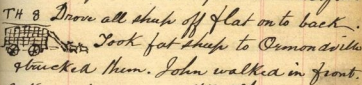 TH 8 Drove all sheep off flat on to back.
Took fat sheep to Ormondville
& trucked them. John walked in front.